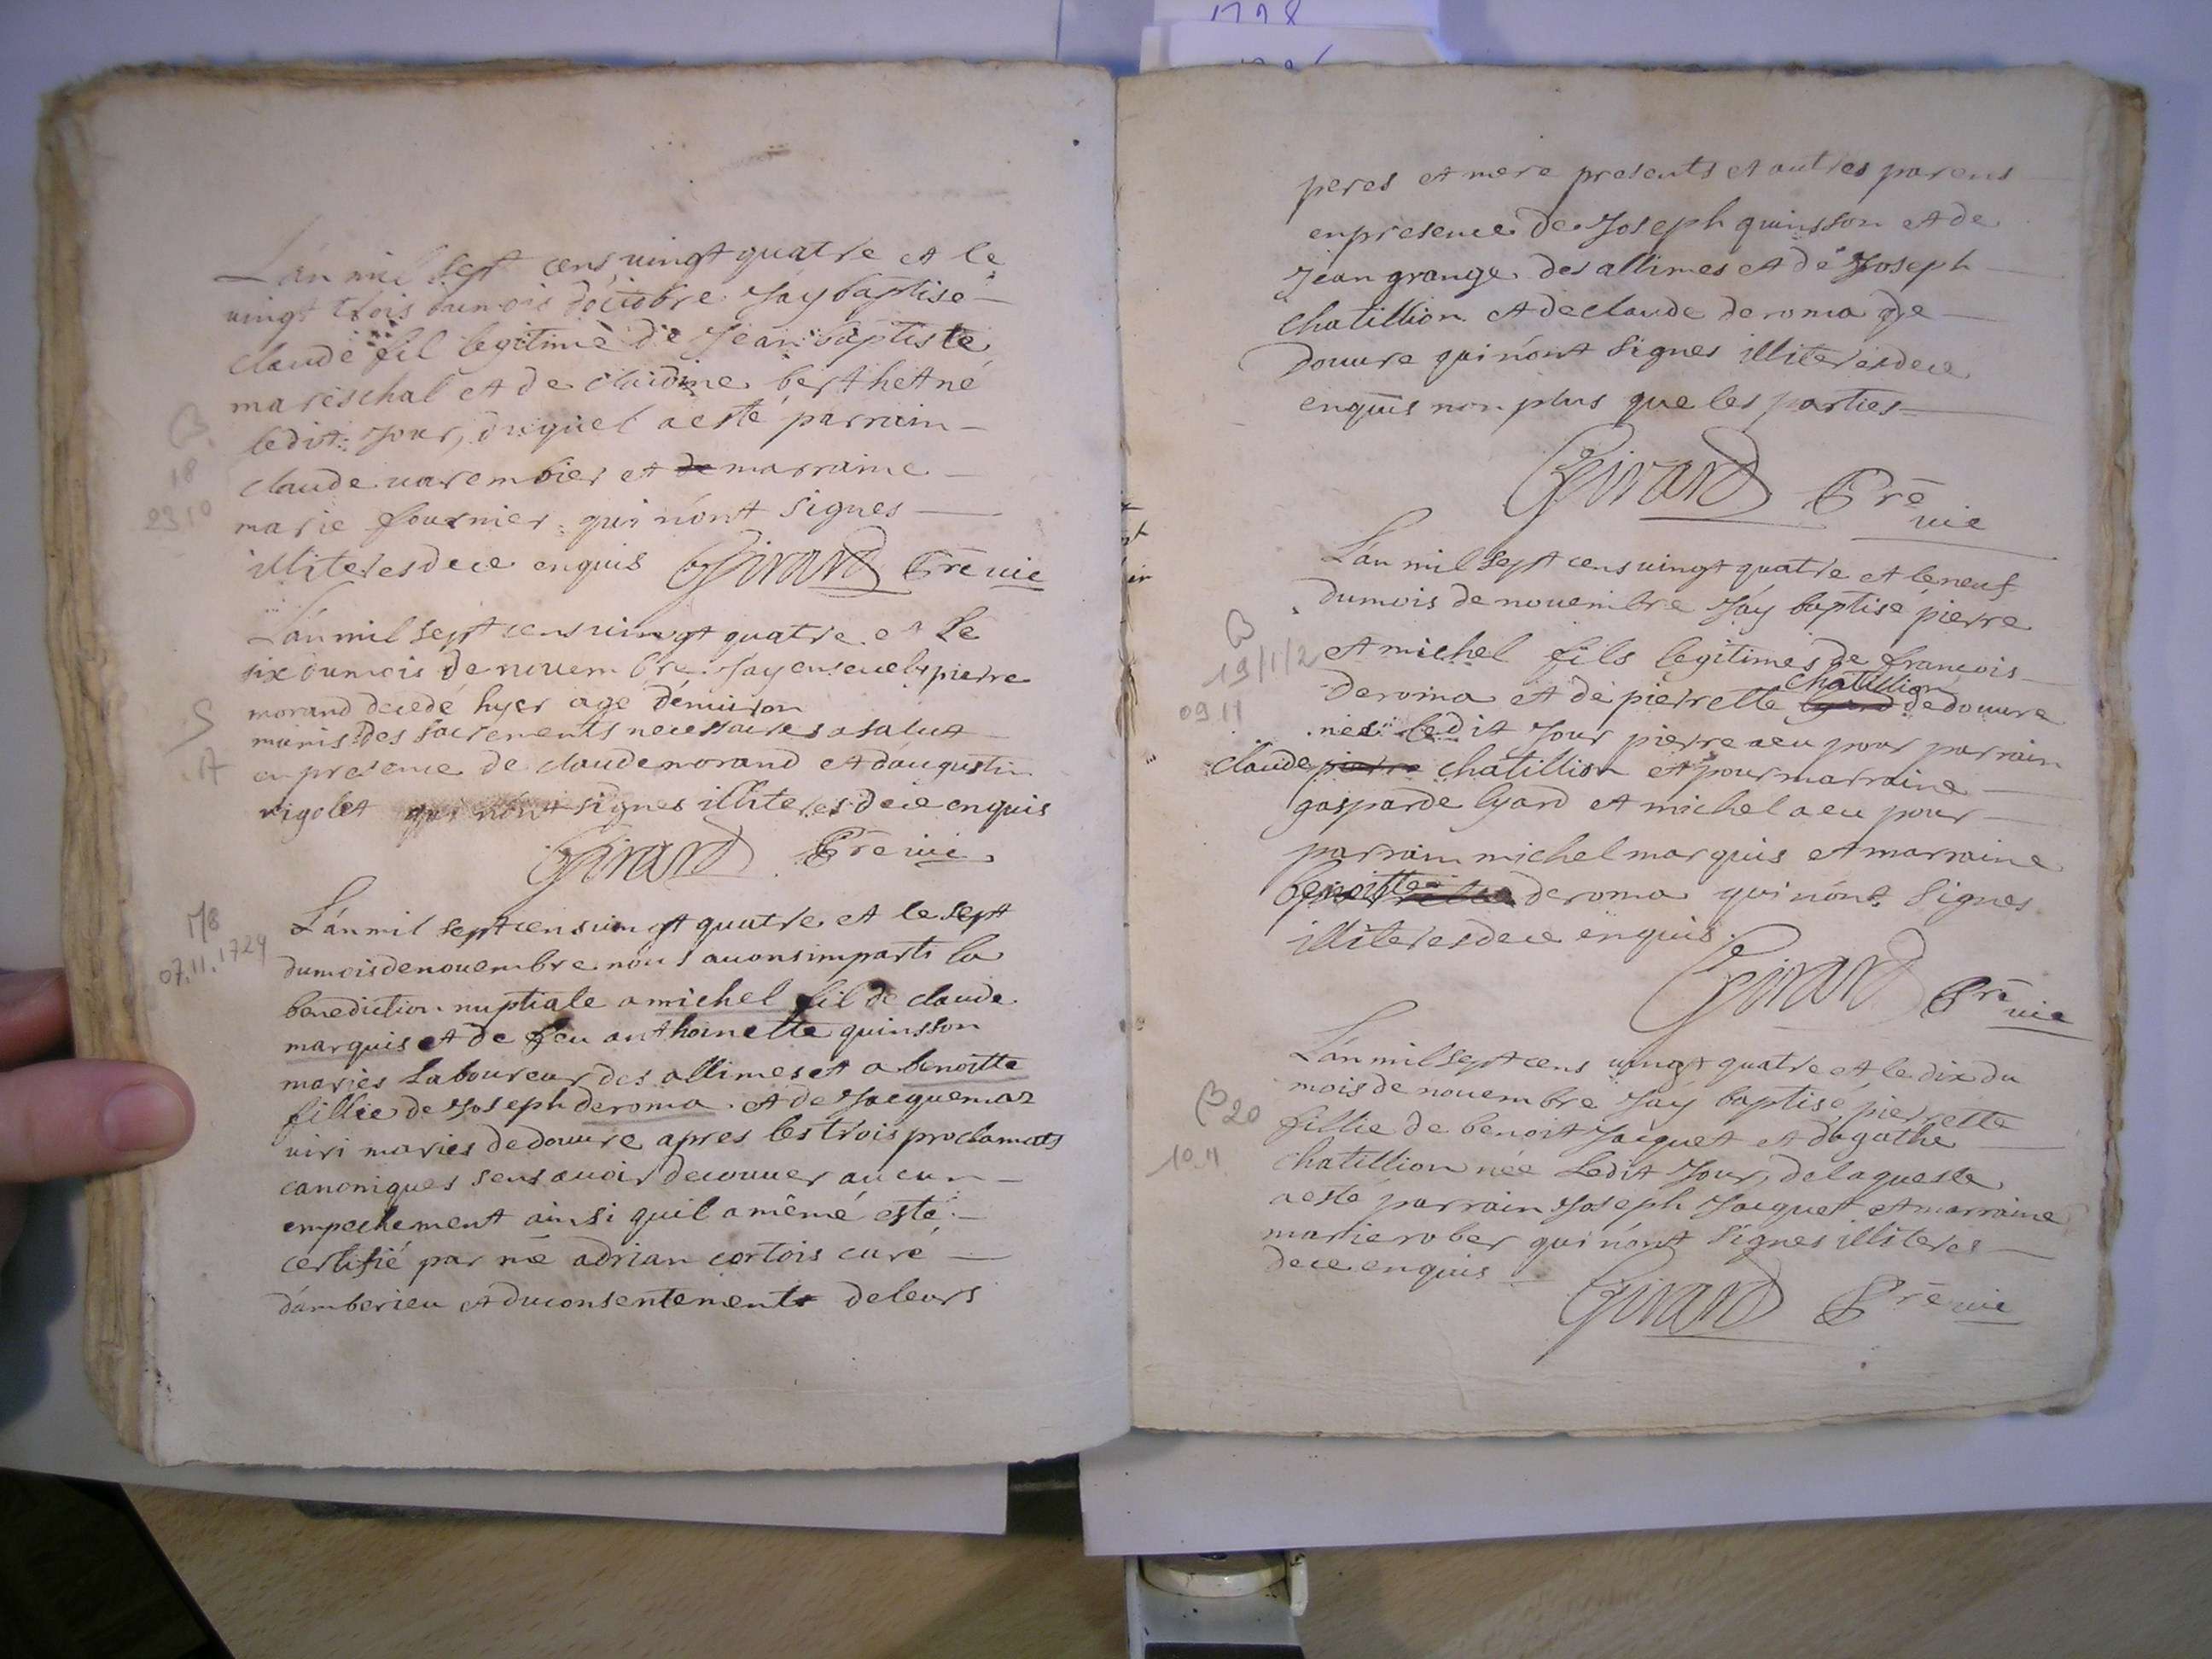 1798
L'an mil sept cens vingt quatre et le
vingt trois dumois d'octobre Jáy baptisé
claude fil legitime de Jean baptiste
mareschal et de claudine berthet né
ledit Jour, duquel a esté parrain
B.
18
23 10
claude varembier et de marraine
marie fournier qui n'ont signes
illiteres de ce enquis Girard Prē vic
L'an mil sept cens vingt quatre et le
six dumois de novembre Jay ensevely pierre
morand decedé hyer agé d'environ
munis des sacrements necessaires a salut
S
en presence de claude morand et d'augustin
vigolet qui n'ont signes illiteres de ce enquis
Girard Prē vic
M8
07.11.1724
L'an mil sept cens vingt quatre et le sept
dumois de novembre nous avons imparti la
benediction nuptiale a michel fil de claude
marquis et de feu anthoinette quinsson
mariés laboureur des allimes et a benoitte
fillie de Joseph deroma et de Jacquemaz
viri mariés de douvre apres les trois proclamats
canoniques sens avoir decouver aucun
empechement ainsi quil a mêmé esté
certifié par me adrian cortois curé
d'amberieu et du consentement de leurs
peres et mere presents et autres parens
en presence de Joseph quinsson et de
Jean grange des allimes et de Joseph
chatillion et de claude deroma de
douvre qui n'ont signes illiteres de ce
enquis non plus que les parties
Girard Prē vic
L'an mil sept cens vingt quatre et le neuf
dumois de novembre Jáy baptisé pierre
B
19/1/2
09 11
et michel fils legitimes de francois
deroma et de pierrette chatillion de douvre
nés ledit Jour pierre a eu pour parrain
claude pierre chatillion et pour marraine
gasparde Gyard et michel a eu pour
parrain michel marquis et marraine
benoitte deroma qui n'ont signes
illiteres de ce enquis
Girard Prē vic
L'an mil sept cens vingt quatre et le dix du
mois de novembre Jáy baptisé pierrette
B 20
10.11
fillie de benoit Jacquet et d'agathe
chatillion née ledit Jour, de laquelle
a esté parrain Joseph Jacquet et marraine
marie rober qui n'ont signes illiteres
de ce enquis
Girard Prē vic